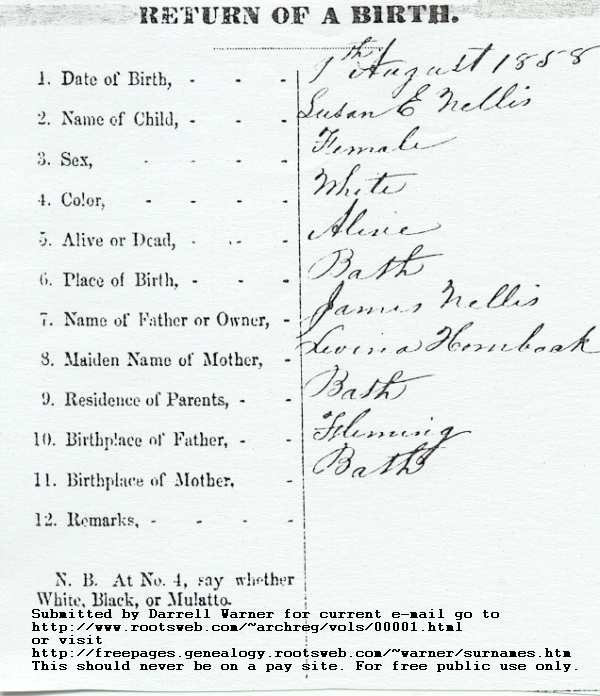 RETURN OF A BIRTH.
1. Date of Birth, - - - 9th August 1858
2. Name of Child, - - - Susan E Nellis
3. Sex, - - - - Female
4. Color, - - - - White
5. Alive or Dead, - - - Alive
6. Place of Birth, - - - Bath
7. Name of Father or Owner, - James Nellis
8. Maiden Name of Mother, - Levina Hornback
9. Residence of Parents, - - Bath
10. Birthplace of Father, - - Fleming
11. Birthplace of Mother, - Bath
12. Remarks, - - - -
N. B. At No. 4, say whether
White, Black, or Mulatto.
Submitted by Darrell Warner for current e-mail go to
http://www.rootsweb.com/~archreg/vols/00001.html
or visit
http://freepages.genealogy.rootsweb.com/~warner/surnames.htm
This should never be on a pay site. For free public use only.